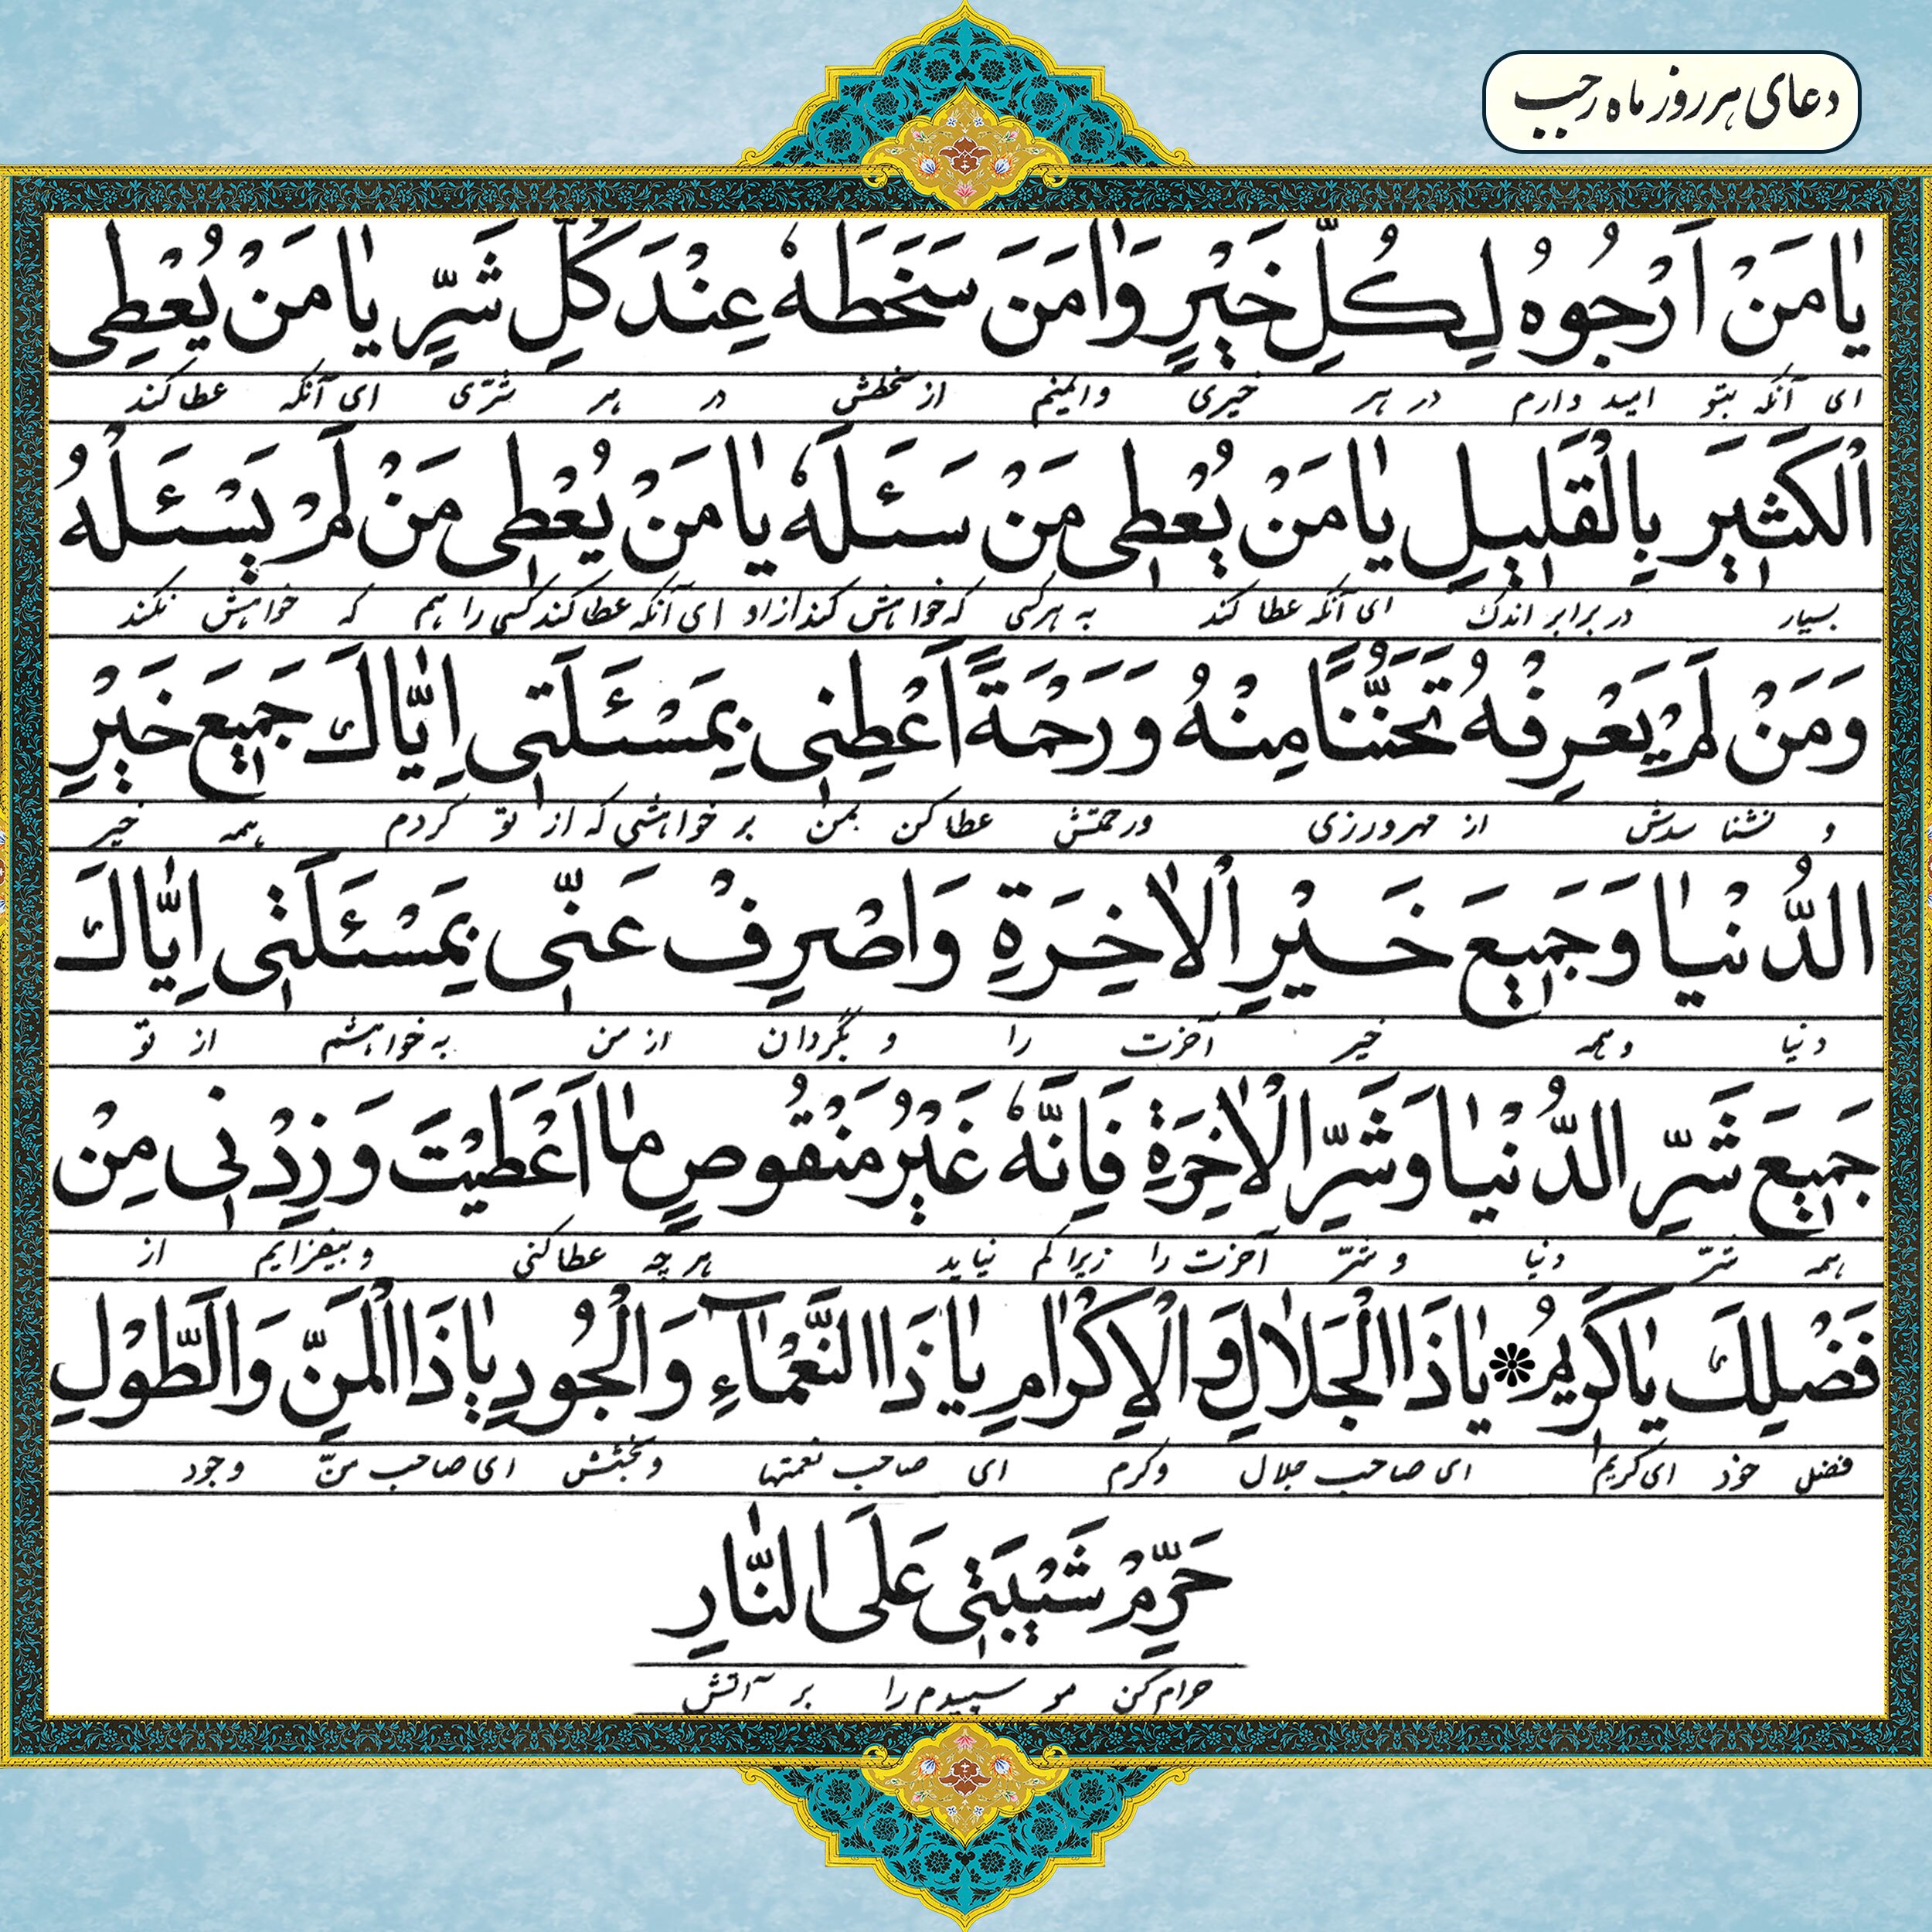 دعای هر روز ماه رجب
یٰا مَنْ اَرْجُوهُ لِکُلِّ خَیْرٍ وَاٰمَنَ سَخَطَهُ عِنْدَ کُلِّ شَرٍّ یٰا مَنْ یُعْطِی
ای آنکه بتو امید دارم در هر خیری وایمنیم از سخطش در هر شرّی ای آنکه عطا کند
اَلْکَثیٖرَ بِالْقَلیٖلِ یٰا مَنْ یُعْطیٖ مَنْ سَئَلَهُ یٰا مَنْ یُعْطیٖ مَنْ لَمْ یَسْئَلْهُ
بسیار در برابر اندک ای آنکه عطا کند به هرکسی که خواهش کند از او ای آنکه عطا کند کسی را هم که خواهش نکند
وَمَنْ لَمْ یَعْرِفْهُ تَحَنُّنًا مِنْهُ وَرَحْمَةً اَعْطِنیٖ بِمَسْئَلَتیٖ اِیّٰاکَ جَمیٖعَ خَیْرِ
و نشناسدش از مهرورزی ورحمتش عطا کن بمن بر خواهشی که از تو کردم همه خیر
الدُّنْیٰا وَجَمیٖعَ خَیْرِ اْلاٰخِرَةِ وَاصْرِفْ عَنّیٖ بِمَسْئَلَتیٖ اِیّٰاکَ
دنیا وهمه خیر آخرت را و بگردان از من به خواهشم از تو
جَمیٖعَ شَرِّ الدُّنْیٰا وَشَرِّ الْاٰخِرَةِ فَاِنَّهُ غَیْرُ مَنْقُوصٍ مٰا اَعْطَیْتَ وَزِدْنیٖ مِنْ
همه شرّ دنیا و شرّ آخرت را زیرا کم نیاید هر چه عطا کنی وبیفزایم از
فَضْلِکَ یٰا کَریٖمُ ❇ یٰا ذَا الْجَلاٰلِ وَالْاِکْرٰامِ یٰا ذَا النَّعْمٰاۤءِ وَالْجُودِ یٰا ذَا الْمَنِّ وَالطَّوْلِ
فضل خود ای کریم ای صاحب جلال وکرم ای صاحب نعمتها وبخشش ای صاحب منّ وجود
حَرِّمْ شَیْبَتیٖ عَلَی النّٰارِ
حرام کن مو سپیدم را بر آتش